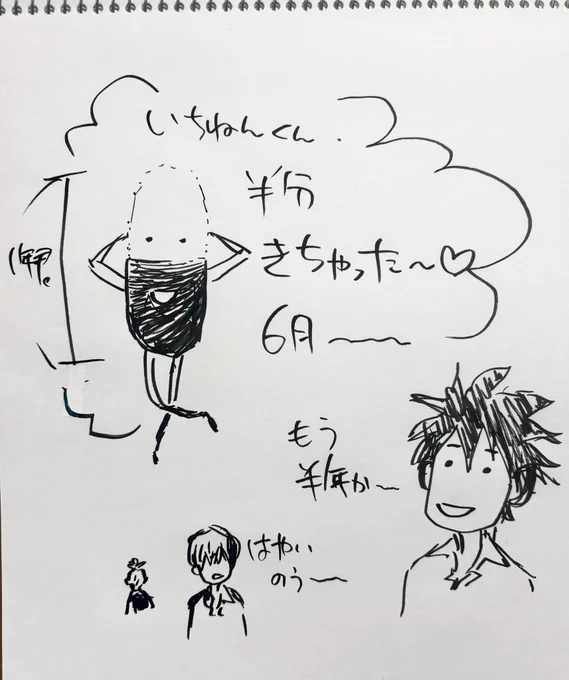 いちねんくん.
半分
きちゃった〜♡
6月〜〜
1年
もう
半年か〜
はやい
のう〜